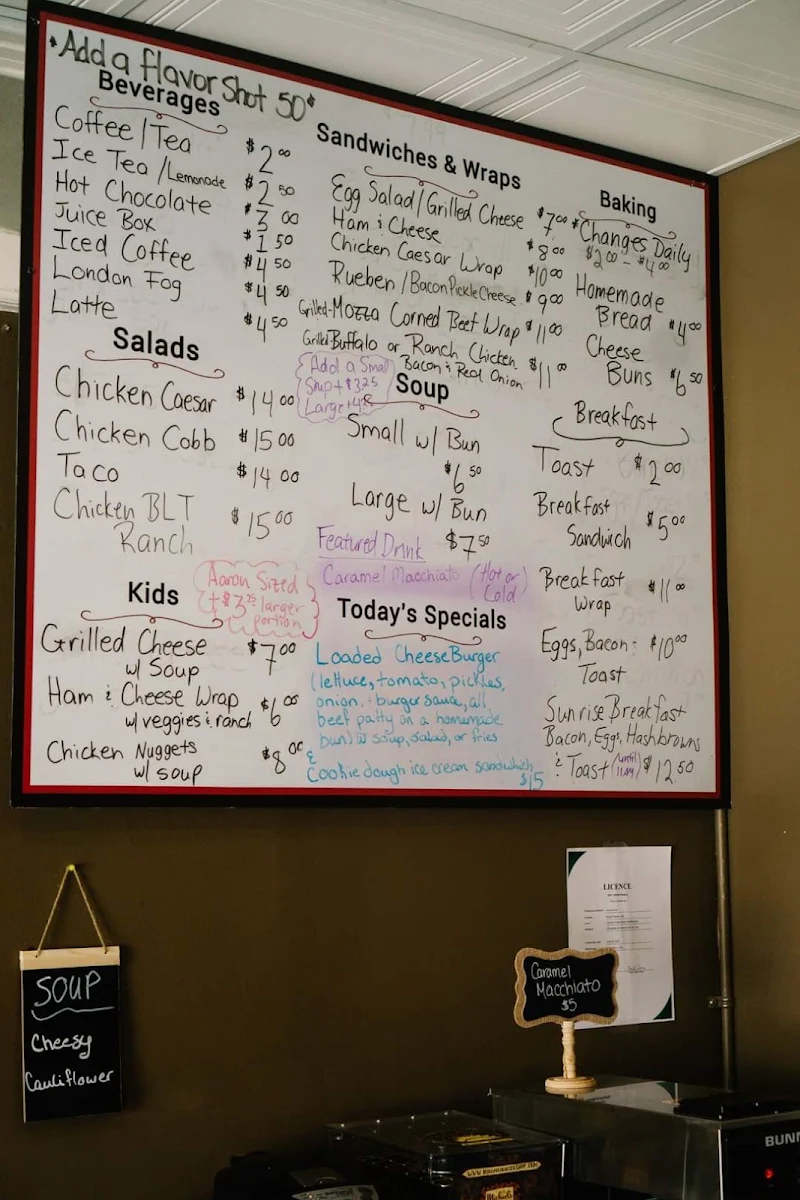 *Add a flavor Shot 50¢
Beverages
Coffee/Tea $2.00
Ice Tea/Lemonade $2.50
Hot Chocolate $3.00
Juice Box $1.50
Iced Coffee $4.50
London Fog $4.50
Latte $4.50
Salads
Chicken Caesar $14.00
Chicken Cobb $15.00
Taco $14.00
Chicken BLT
Ranch $15.00
Aaron Sized
+$3.25 larger
portion
Kids
Grilled Cheese
w/ Soup $7.00
Ham & Cheese Wrap
w/veggies & ranch $6.00
Chicken Nuggets
w/ soup $8.00
Sandwiches & Wraps
Egg Salad/Grilled Cheese $7.00
Ham & Cheese $8.00
Chicken Caesar Wrap $10.00
Rueben/Bacon Pickle Cheese $9.00
Grilled-Mozza Corned Beef Wrap $11.00
Grilled Buffalo or Ranch Chicken
Bacon & Red Onion $11.00
Add a Small
Soup + $3.25
Large +
Soup
Small w/ Bun
$6.50
Large w/ Bun
$7.50
Featured Drink
Caramel Macchiato (Hot or
Cold
Today's Specials
Loaded CheeseBurger
(lettuce, tomato, pickles,
onion, burger sauce, all
beef patty on a homemade
bun) w soup, salad, or fries
&
Cookie dough ice cream sandwich
$15
Baking
*Changes Daily
$2.00 - $4.00
Homemade
Bread $4.00
Cheese
Buns $6.50
Breakfast
Toast $2.00
Breakfast
Sandwich $5.00
Breakfast
Wrap $11.00
Eggs, Bacon & $10.00
Toast
Sunrise Breakfast
Bacon, Eggs, Hashbrowns
& Toast (until 11am) $12.50
SOUP
Cheesy
Cauliflower
LICENCE
Caramel
Macchiato
$5
BUNN